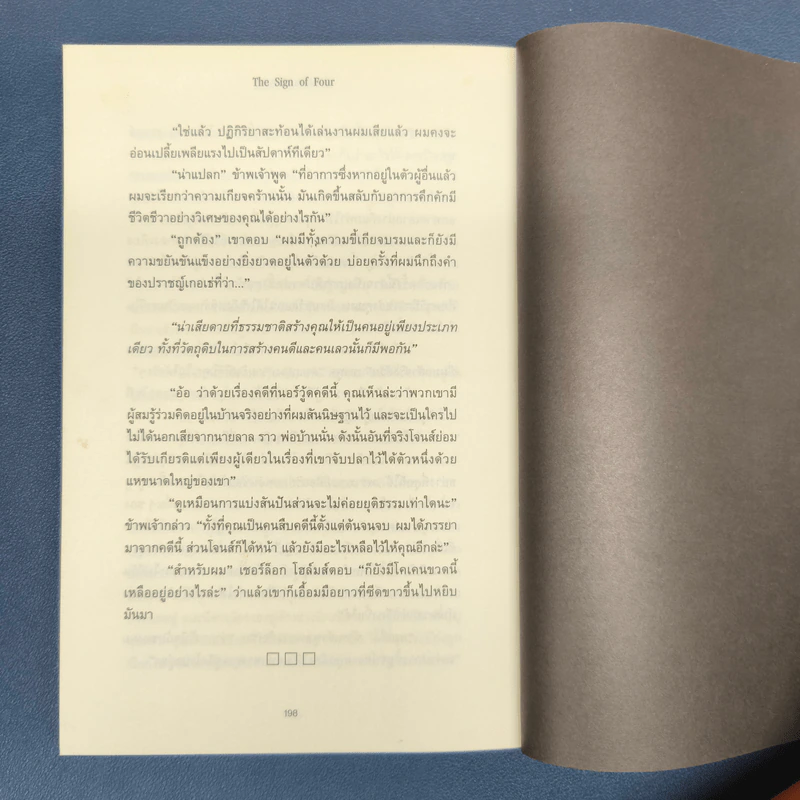 The Sign of Four
“ใช่แล้ว ปฏิกิริยาสะท้อนได้เล่นงานผมเสียแล้ว ผมคงจะ
อ่อนเปลี้ยเพลียแรงไปเป็นสัปดาห์ทีเดียว”
“น่าแปลก” ข้าพเจ้าพูด “ที่อาการซึ่งหากอยู่ในตัวผู้อื่นแล้ว
ผมจะเรียกว่าความเกียจคร้านนั้น มันเกิดขึ้นสลับกับอาการคึกคักมี
ชีวิตชีวาอย่างวิเศษของคุณได้อย่างไรกัน”
“ถูกต้อง” เขาตอบ “ผมมีทั้งความขี้เกียจบรมและก็ยังมี
ความขยันขันแข็งอย่างยิ่งยวดอยู่ในตัวด้วย บ่อยครั้งที่ผมนึกถึงคำ
ของปราชญ์เกอเธ่ที่ว่า...”
“น่าเสียดายที่ธรรมชาติสร้างคุณให้เป็นคนอยู่เพียงประเภท
เดียว ทั้งที่วัตถุดิบในการสร้างคนดีและคนเลวนั้นก็มีพอกัน”
“อ้อ ว่าด้วยเรื่องคดีที่นอร์วู้ดคดีนี้ คุณเห็นล่ะว่าพวกเขามี
ผู้สมรู้ร่วมคิดอยู่ในบ้านจริงอย่างที่ผมสันนิษฐานไว้ และจะเป็นใครไป
ไม่ได้นอกเสียจากนายลาล ราว พ่อบ้านนั่น ดังนั้นอันที่จริงโจนส์ย่อม
ได้รับเกียรติแต่เพียงผู้เดียวในเรื่องที่เขาจับปลาไว้ได้ตัวหนึ่งด้วย
แหขนาดใหญ่ของเขา”
“ดูเหมือนการแบ่งสันปันส่วนจะไม่ค่อยยุติธรรมเท่าใดนะ”
ข้าพเจ้ากล่าว “ทั้งที่คุณเป็นคนสืบคดีนี้ตั้งแต่ต้นจนจบ ผมได้ภรรยา
มาจากคดีนี้ ส่วนโจนส์ก็ได้หน้า แล้วยังมีอะไรเหลือไว้ให้คุณอีกล่ะ”
“สำหรับผม” เชอร์ล็อก โฮล์มส์ตอบ “ก็ยังมีโคเคนขวดนี้
เหลืออยู่อย่างไรล่ะ” ว่าแล้วเขาก็เอื้อมมือยาวที่ซีดขาวขึ้นไปหยิบ
มันมา
198